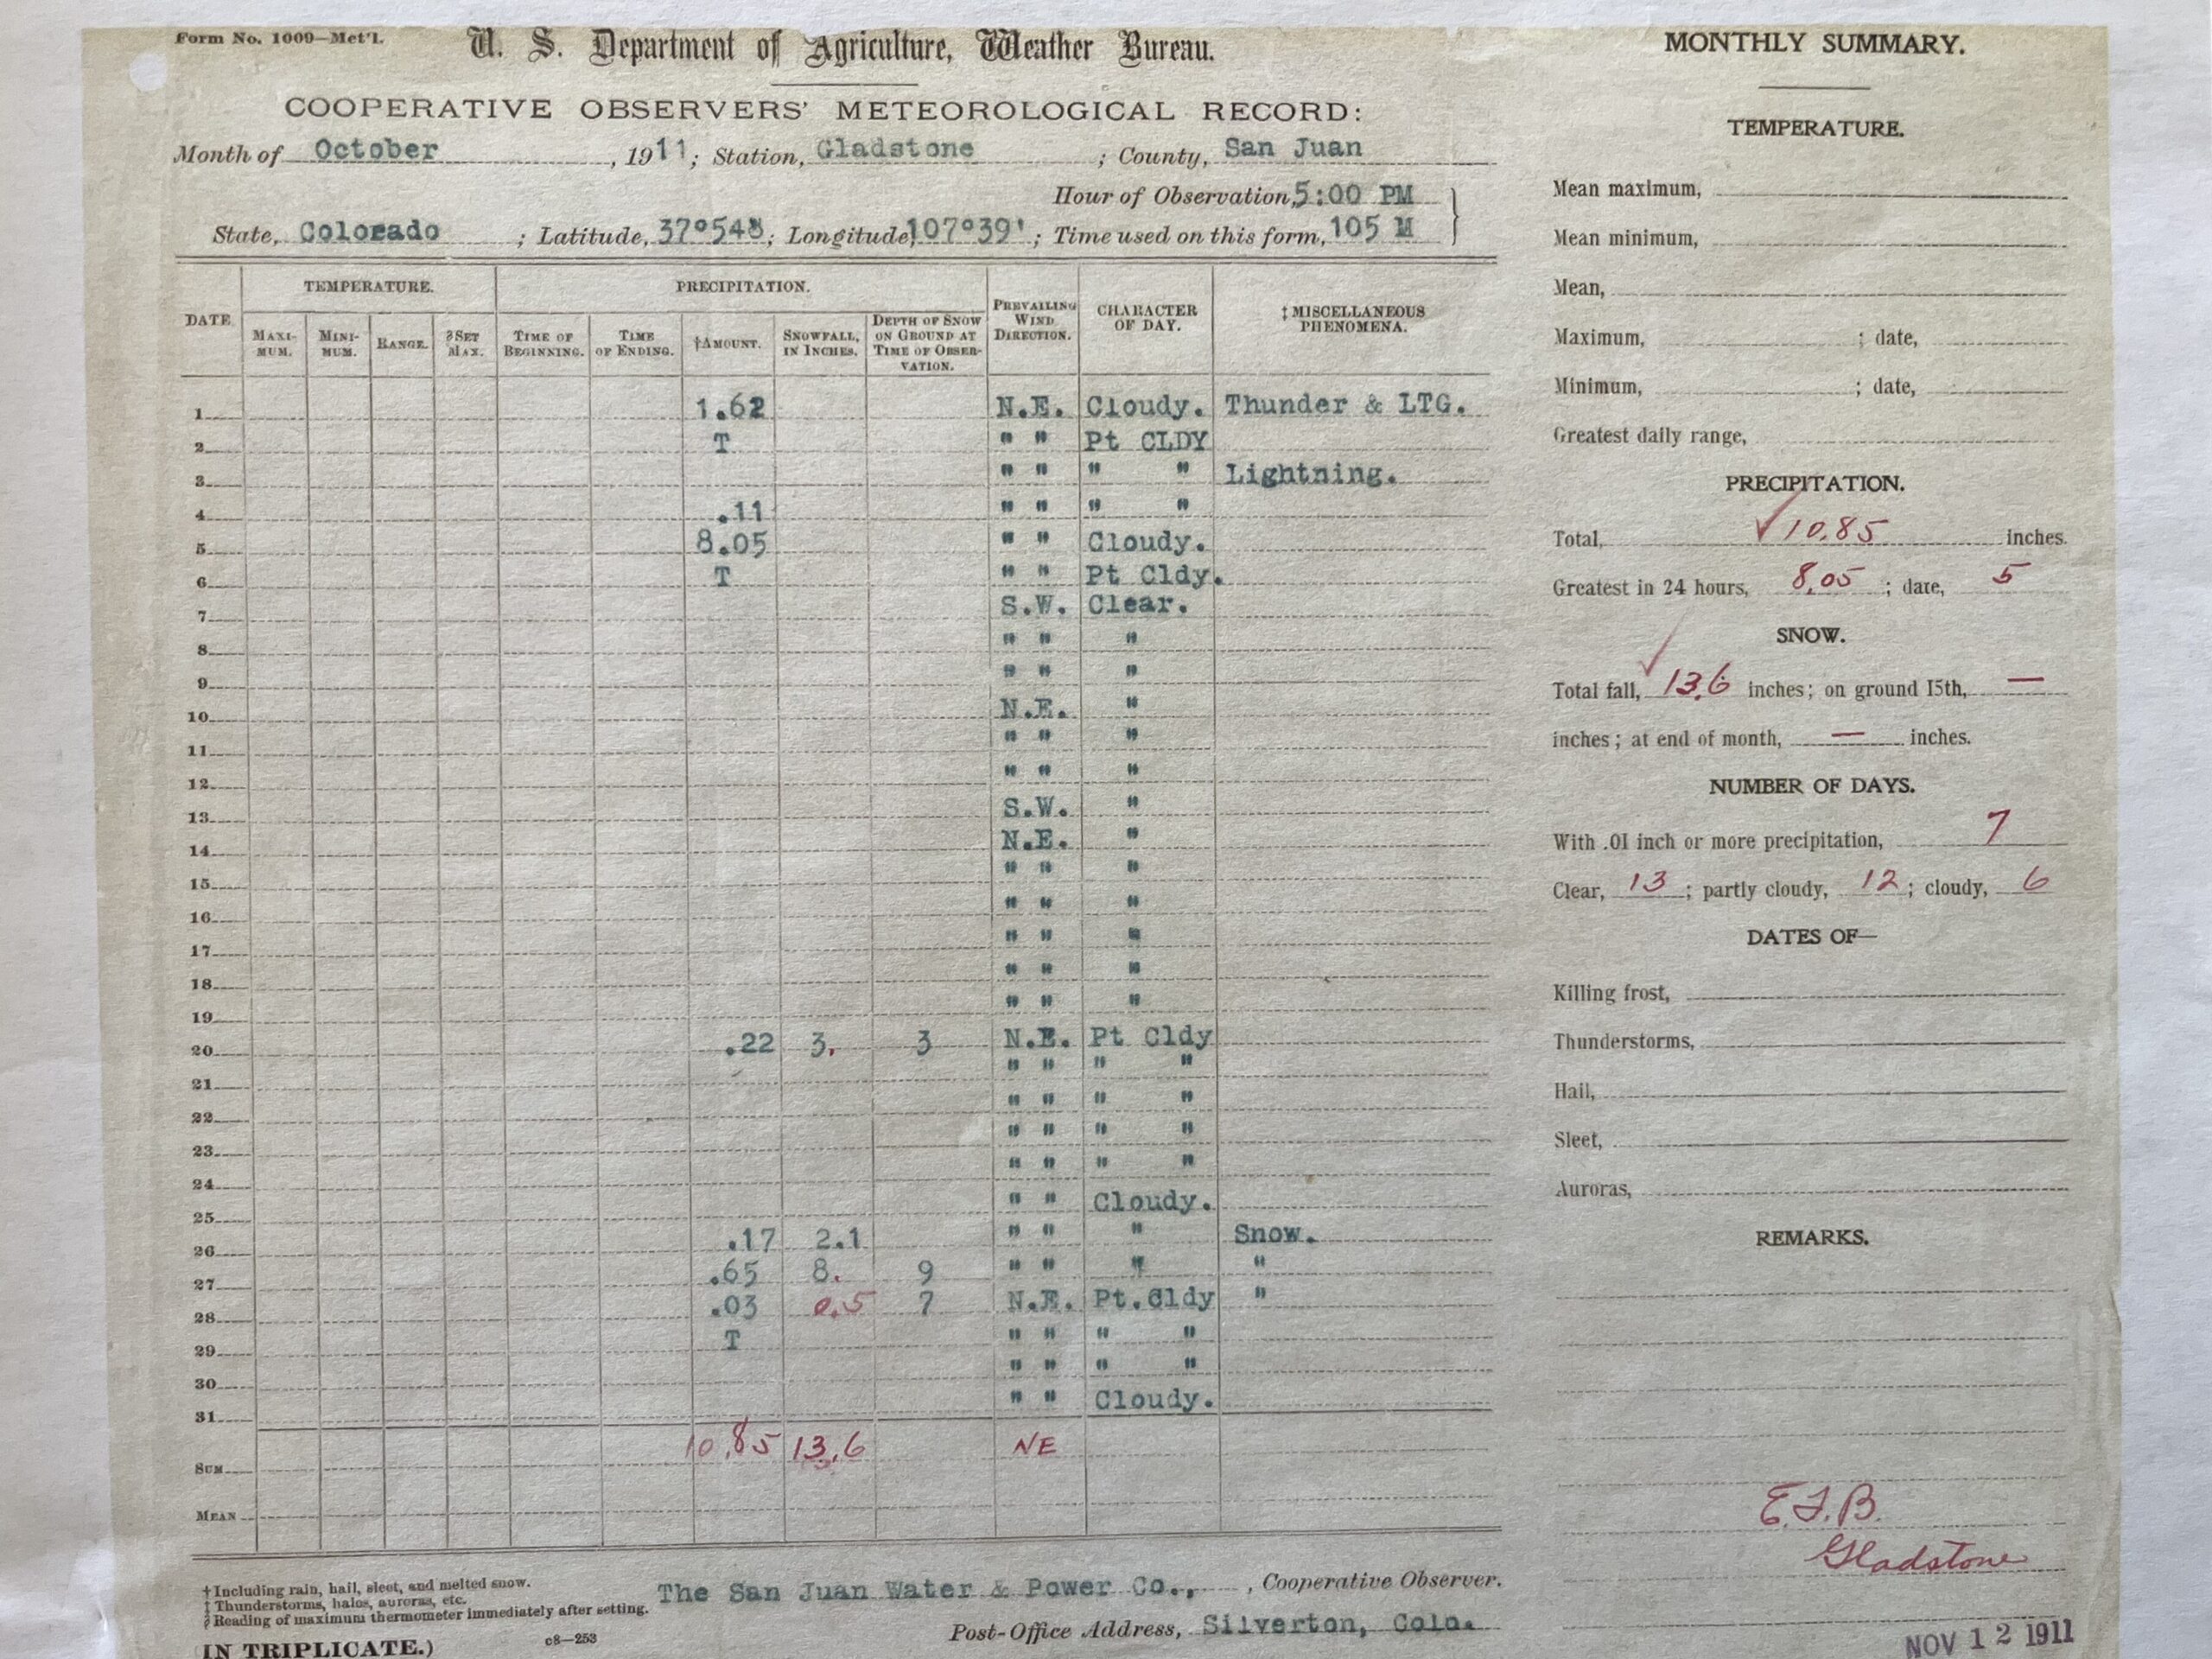 Form No. 1009—Met'l.
U. S. Department of Agriculture, Weather Bureau.
COOPERATIVE OBSERVERS' METEOROLOGICAL RECORD:
Month of October, 1911; Station, Gladstone; County, San Juan
Hour of Observation, 5:00 PM
State, Colorado; Latitude, 37°548; Longitude, 107°39'; Time used on this form, 105 M
DATE TEMPERATURE. PRECIPITATION. PREVAILING WIND DIRECTION. CHARACTER OF DAY. ‡MISCELLANEOUS PHENOMENA.
MAXIMUM. MINIMUM. RANGE. §SET MAX. TIME OF BEGINNING. TIME OF ENDING. †AMOUNT. SNOWFALL, IN INCHES. DEPTH OF SNOW ON GROUND AT TIME OF OBSERVATION.
1 1.62 N.E. Cloudy. Thunder & LTG.
2 T " " Pt CLDY
3 " " " " Lightning.
4 .11 " " " "
5 8.05 " " Cloudy.
6 T " " Pt Cldy.
7 S.W. Clear.
8 " " "
9 " " "
10 N.E. "
11 " " "
12 " " "
13 S.W. "
14 N.E. "
15 " " "
16 " " "
17 " " "
18 " " "
19 " " "
20 .22 3. 3 N.E. Pt Cldy
21 " " " "
22 " " " "
23 " " " "
24 " " " "
25 " " Cloudy.
26 .17 2.1 " " " Snow.
27 .65 8. 9 " " " "
28 .03 0.5 7 N.E. Pt.Cldy "
29 T " " " "
30 " " " "
31 " " Cloudy.
SUM 10.85 13.6 NE
MEAN
†Including rain, hail, sleet, and melted snow.
‡Thunderstorms, halos, auroras, etc.
§Reading of maximum thermometer immediately after setting.
The San Juan Water & Power Co., , Cooperative Observer.
Post-Office Address, Silverton, Colo.
(IN TRIPLICATE.)
c8—253
MONTHLY SUMMARY.
TEMPERATURE.
Mean maximum,
Mean minimum,
Mean,
Maximum, ; date,
Minimum, ; date,
Greatest daily range,
PRECIPITATION.
Total, 10.85 inches.
Greatest in 24 hours, 8.05; date, 5
SNOW.
Total fall, 13.6 inches; on ground 15th, —
inches; at end of month, — inches.
NUMBER OF DAYS.
With .01 inch or more precipitation, 7
Clear, 13; partly cloudy, 12; cloudy, 6
DATES OF—
Killing frost,
Thunderstorms,
Hail,
Sleet,
Auroras,
REMARKS.
E.F.B.
Gladstone
NOV 12 1911